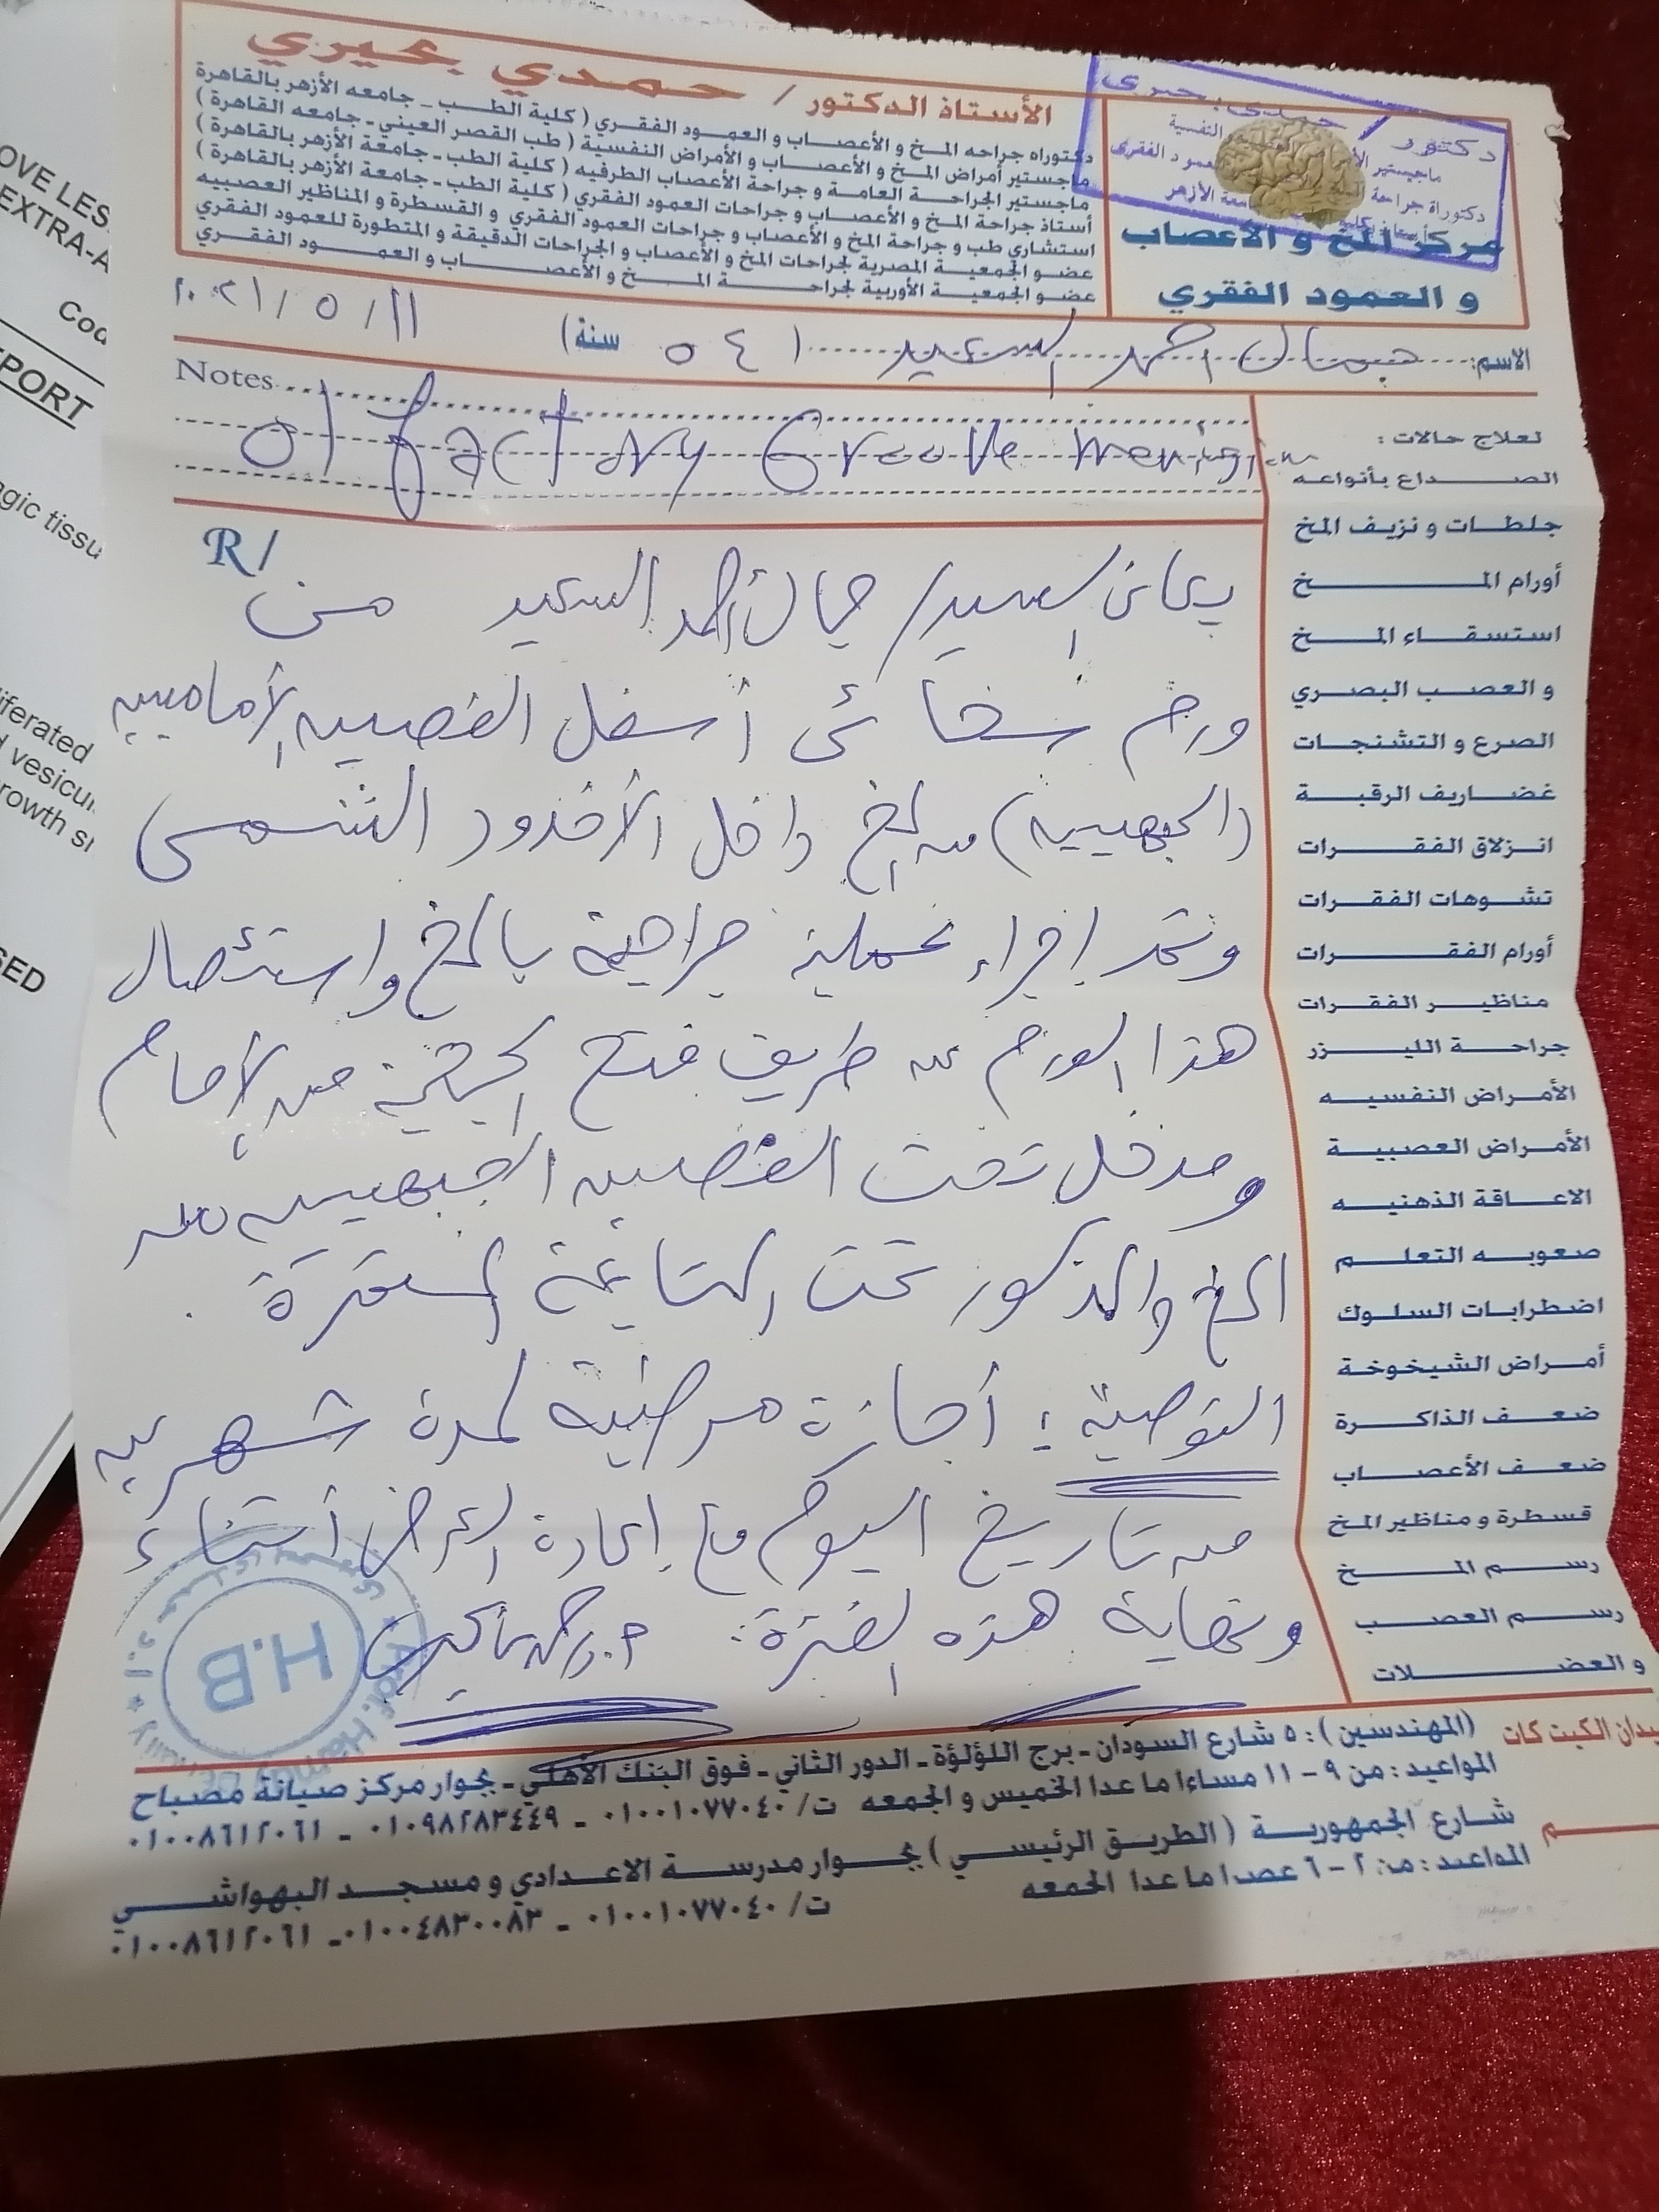 OVE LES
EXTRA-A
Coc
PORT
gic tissu
liferated
d vesicu
rowth si
SED
الأستاذ الدكتور / حمدي بحيري
دكتوراه جراحه المخ و الأعصاب و العمود الفقري ( كلية الطب - جامعه الأزهر بالقاهرة
ماجستير أمراض المخ و الأعصاب و الأمراض النفسية ( طب القصر العيني - جامعه القاهرة )
ماجستير الجراحة العامة و جراحة الأعصاب الطرفيه ( كلية الطب - جامعة الأزهر بالقاهرة )
أستاذ جراحة المخ و الأعصاب و جراحات العمود الفقري ( كلية الطب - جامعة الأزهر بالقاهرة )
استشاري طب و جراحة المخ و الأعصاب و جراحات العمود الفقري و القسطرة و المناظير العصبيه
عضو الجمعية المصرية لجراحات المخ و الأعصاب و الجراحات الدقيقة و المتطورة للعمود الفقري
عضو الجمعية الأوربية لجراحة المخ و الأعصاب و العمود الفقري
دكتور / حمدى بحيرى
ماجيستير النفسية
دكتوراة جراحة العمود الفقرى
الأزهر
مركز المخ و الأعصاب
و العمود الفقري
الاسم: جمال احمد السعيد ( ٥٤ سنة) ٢٠٢١/٥/١١
Notes
olfactory Groove meningiom
R/
يعانى السيد/ جمال أحمد السعيد من
ورم سحائى أسفل الفصيه الأماميه
(الجبهييه) من المخ داخل الأخدود الشمى
وتم إجراء عملية جراحية بالمخ واستئصال
هذا الورم عن طريق فتح الجمجمة من الأمام
ومدخل تحت الفصين الجبهيين من
المخ والمذكور تحت المتابعة المستمرة .
التوصية : أجازة مرضية لمدة شهرين
من تاريخ اليوم مع إعادة العرض أثناء
ونهاية هذه الفترة.
H.B
Prof. Hamdy
لعلاج حالات :
الصداع بأنواعه
جلطات و نزيف المخ
أورام المخ
استسقاء المخ
و العصب البصري
الصرع و التشنجات
غضاريف الرقبة
انزلاق الفقرات
تشوهات الفقرات
أورام الفقرات
مناظير الفقرات
جراحة الليزر
الأمراض النفسيه
الأمراض العصبية
الاعاقة الذهنيه
صعوبه التعلم
اضطرابات السلوك
أمراض الشيخوخة
ضعف الذاكرة
ضعف الأعصاب
قسطرة و مناظير المخ
رسم المخ
رسم العصب
و العضلات
يدان الكيت كات (المهندسين ) : ٥ شارع السودان - برج اللؤلؤة - الدور الثاني - فوق البنك الأهلي - بجوار مركز صيانة مصباح
المواعيد : من ٩ - ١١ مساءا ما عدا الخميس و الجمعه ت/ ٠١٠٠١٠٧٧٠٤٠ - ٠١٠٩٨٢٨٣٤٤٩ - ٠١٠٠٨٦١٢٠٦١
شارع الجمهورية ( الطريق الرئيسي ) بجوار مدرسة الاعدادي و مسجد البهواشي
المواعيد : من ٢ - ٦ عصرا ما عدا الجمعه ت/ ٠١٠٠١٠٧٧٠٤٠ - ٠١٠٠٤٨٣٠٠٨٣ - ٠١٠٠٨٦١٢٠٦١